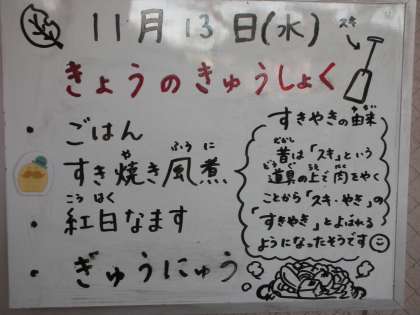 11月13日(水)
スキ
きょうのきゅうしょく
・ごはん
・すき焼き風煮
や ふう に
・紅白なます
こう はく
・ぎゅうにゅう
すきやきの由来
ゆらい
昔は「スキ」という
むかし
道具の上で肉をやく
どうぐ うえ にく
ことから「スキ・やき」の
「すきやき」とよばれる
ようになったそうです